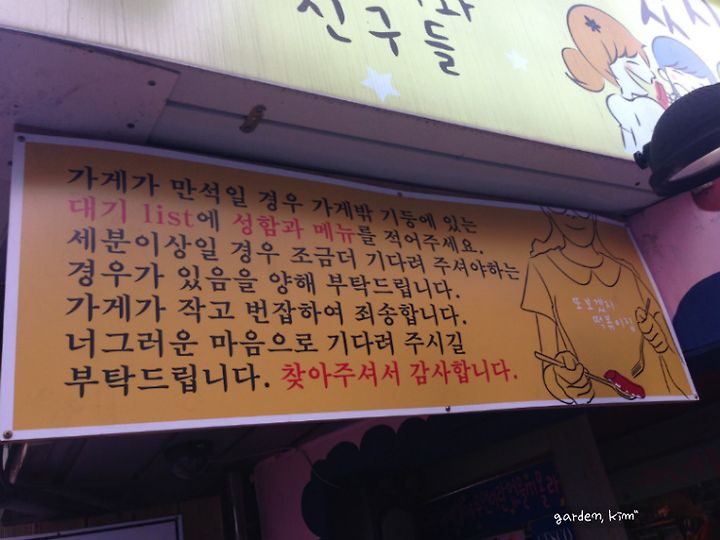 친구들
가게가 만석일 경우 가게밖 기둥에 있는
대기 list에 성함과 메뉴를 적어주세요.
세분이상일 경우 조금더 기다려 주셔야하는
경우가 있음을 양해 부탁드립니다.
가게가 작고 번잡하여 죄송합니다.
너그러운 마음으로 기다려 주시길
부탁드립니다. 찾아주셔서 감사합니다.
또보겠지
떡볶이집
garden, kim"